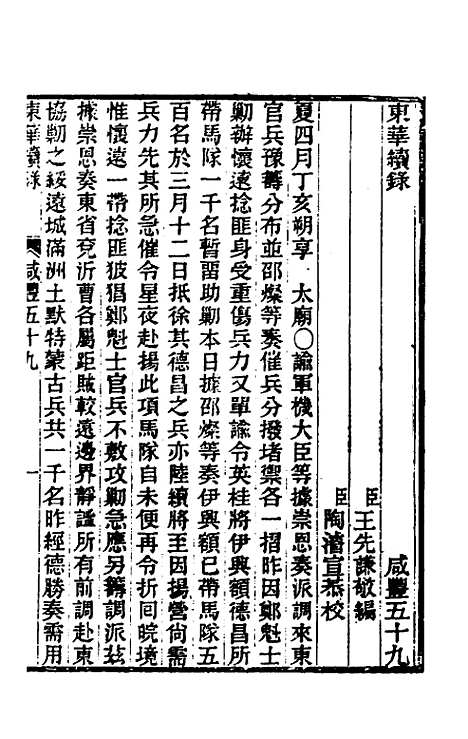 東華續錄
咸豐五十九
臣王先謙敬編
臣陶濬宣恭校
夏四月丁亥朔享 太廟〇諭軍機大臣等據崇恩奏派調來東
官兵豫籌分布並邵燦等奏催兵分撥堵禦各一摺昨因鄭魁士
勦辦懷遠捻匪身受重傷兵力又單諭令英桂將伊興額德昌所
帶馬隊一千名暫畱助勦本日據邵燦等奏伊興額已帶馬隊五
百名於三月十二日抵徐其德昌之兵亦陸續將至因揚營尙需
兵力先其所急催令星夜赴揚此項馬隊自未便再令折回皖境
惟懷遠一帶捻匪披猖鄭魁士官兵不敷攻勦急應另籌調派茲
據崇恩奏東省兗沂曹各屬距賊較遠邊界靜謐所有前調赴東
協勦之綏遠城滿洲土默特蒙古兵共一千名昨經德勝奏需用
東華續錄
咸豐五十九
一